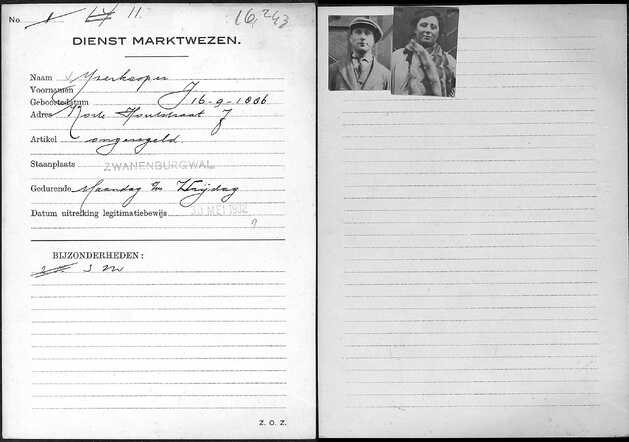 No. 11. 16,243
DIENST MARKTWEZEN.
Naam IJzerkooper
Voornamen J
Geboortedatum 16-9-1886
Adres Korte Houtstraat 7
Artikel ongeregeld.
Staanplaats ZWANENBURGWAL
Gedurende Maandag t/m Vrijdag
Datum uitreiking legitimatiebewijs MEI 1932
BIJZONDERHEDEN:
3 m
Z. O. Z.